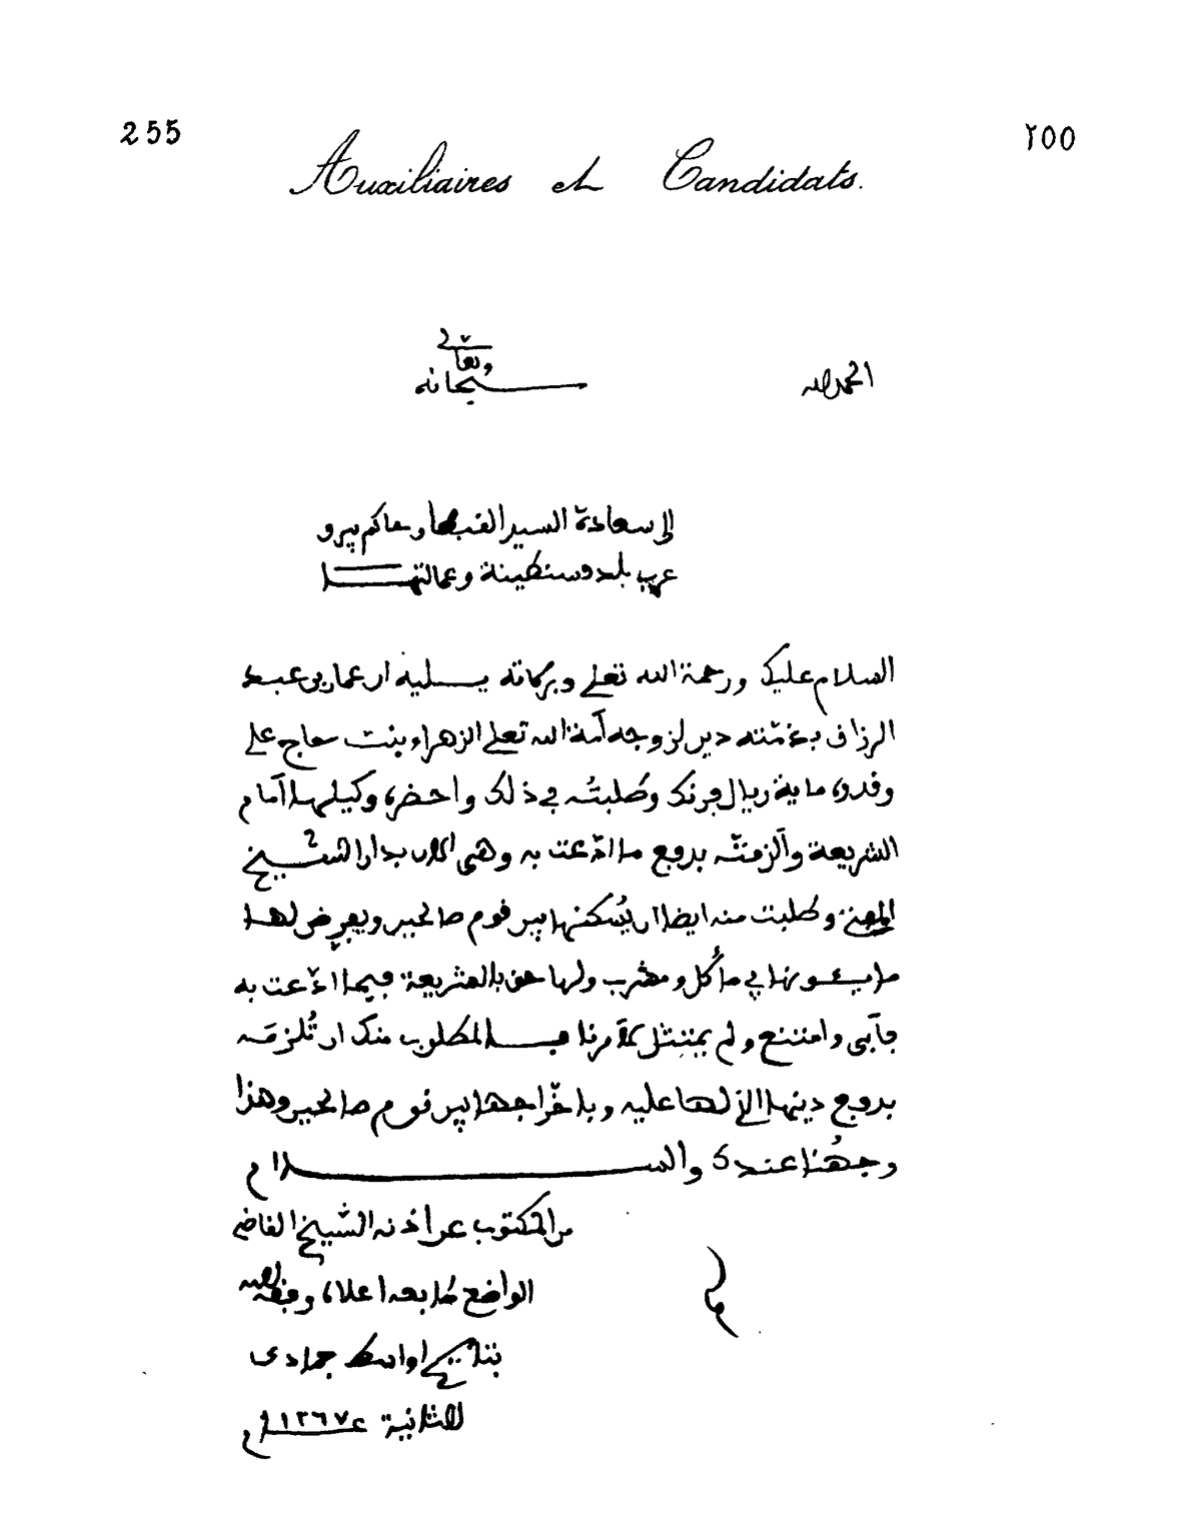 255
٢٥٥
Auxiliaires et Candidats.
الحمد لله
سبحانه وتعالى
إلى سعادة السيد القبطان حاكم بيرو
عرب بلد قسنطينة وعمالتها
السلام عليك ورحمة الله تعلى وبركاته يليه ان عمار بن عبد
الرزاق بذمّته دين لزوجه أمة الله تعلى الزهراء بنت حاج علي
وقدره ماية ريال فرنك وطلبتُه في ذلك واحضره وكيلها أمام
الشريعة وألزمتُه بدفع ما ادّعت به وهي الان بدار الشيخ
وطلبت منه ايضا ان يُسكنها بين قوم صالحين ويفرض لها
ما يمونها في مأكل ومشرب ولها حق بالشريعة فيما ادّعت به
فأبى وامتنع ولم يمتثل لأمرنا فالمطلوب منك ان تُلزمَه
بدفع دينها الذي لها عليه وباخراجها بين قوم صالحين وهذا
وجهُنا عندك والسلام
من المكتوب عن اذنه الشيخ القاضي
الواضع طابعه اعلاه وفقه الله
بتاريخ اواسط جمادى
الثانية ١٢٦٧